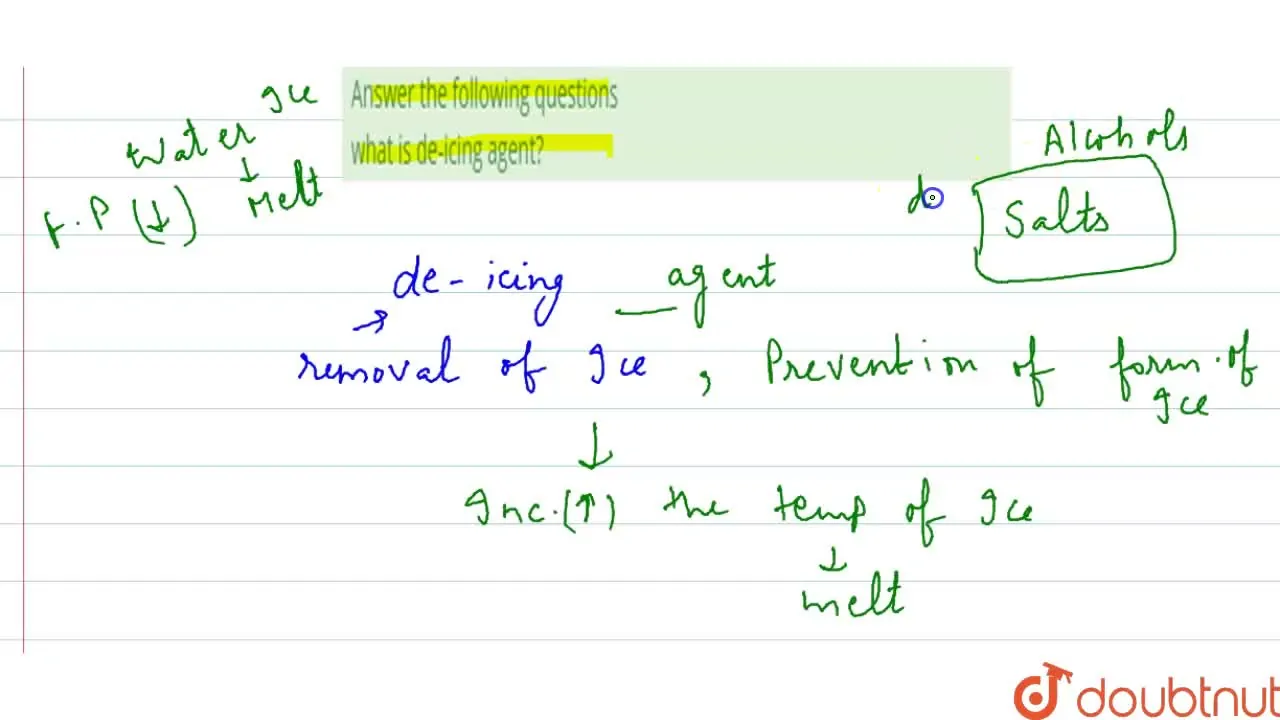 Answer the following questions
what is de-icing agent?
Ice
Water
↓
Melt
F.P (↓)
Alcohols
Salts
de
de-icing agent
→
removal of Ice, Prevention of form. of
Ice
↓
Inc. (↑) the temp of Ice
↓
melt
doubtnut